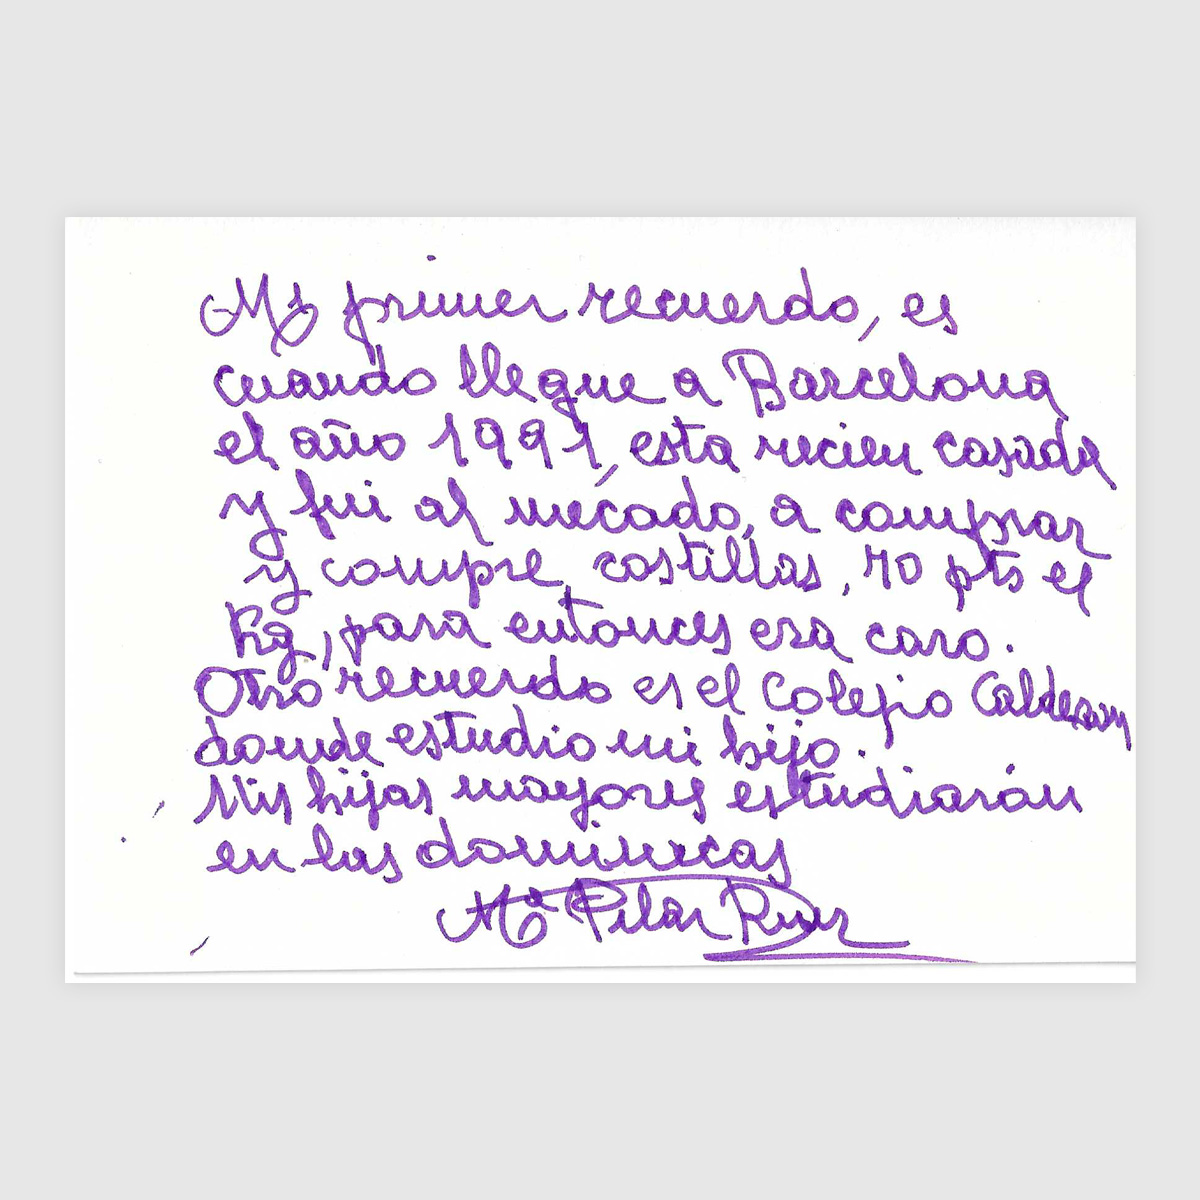 Mi primer recuerdo, es
cuando llegue a Barcelona
el año 1991, esta recien casada
y fui al mecado, a comprar
y compre costillas, 70 pts el
Kg, para entonces era caro.
Otro recuerdo es el Colejio Calderon
donde estudio mi hijo.
Mis hijas mayores estudiarón
en las dominicas
Mª Pilar Ruiz